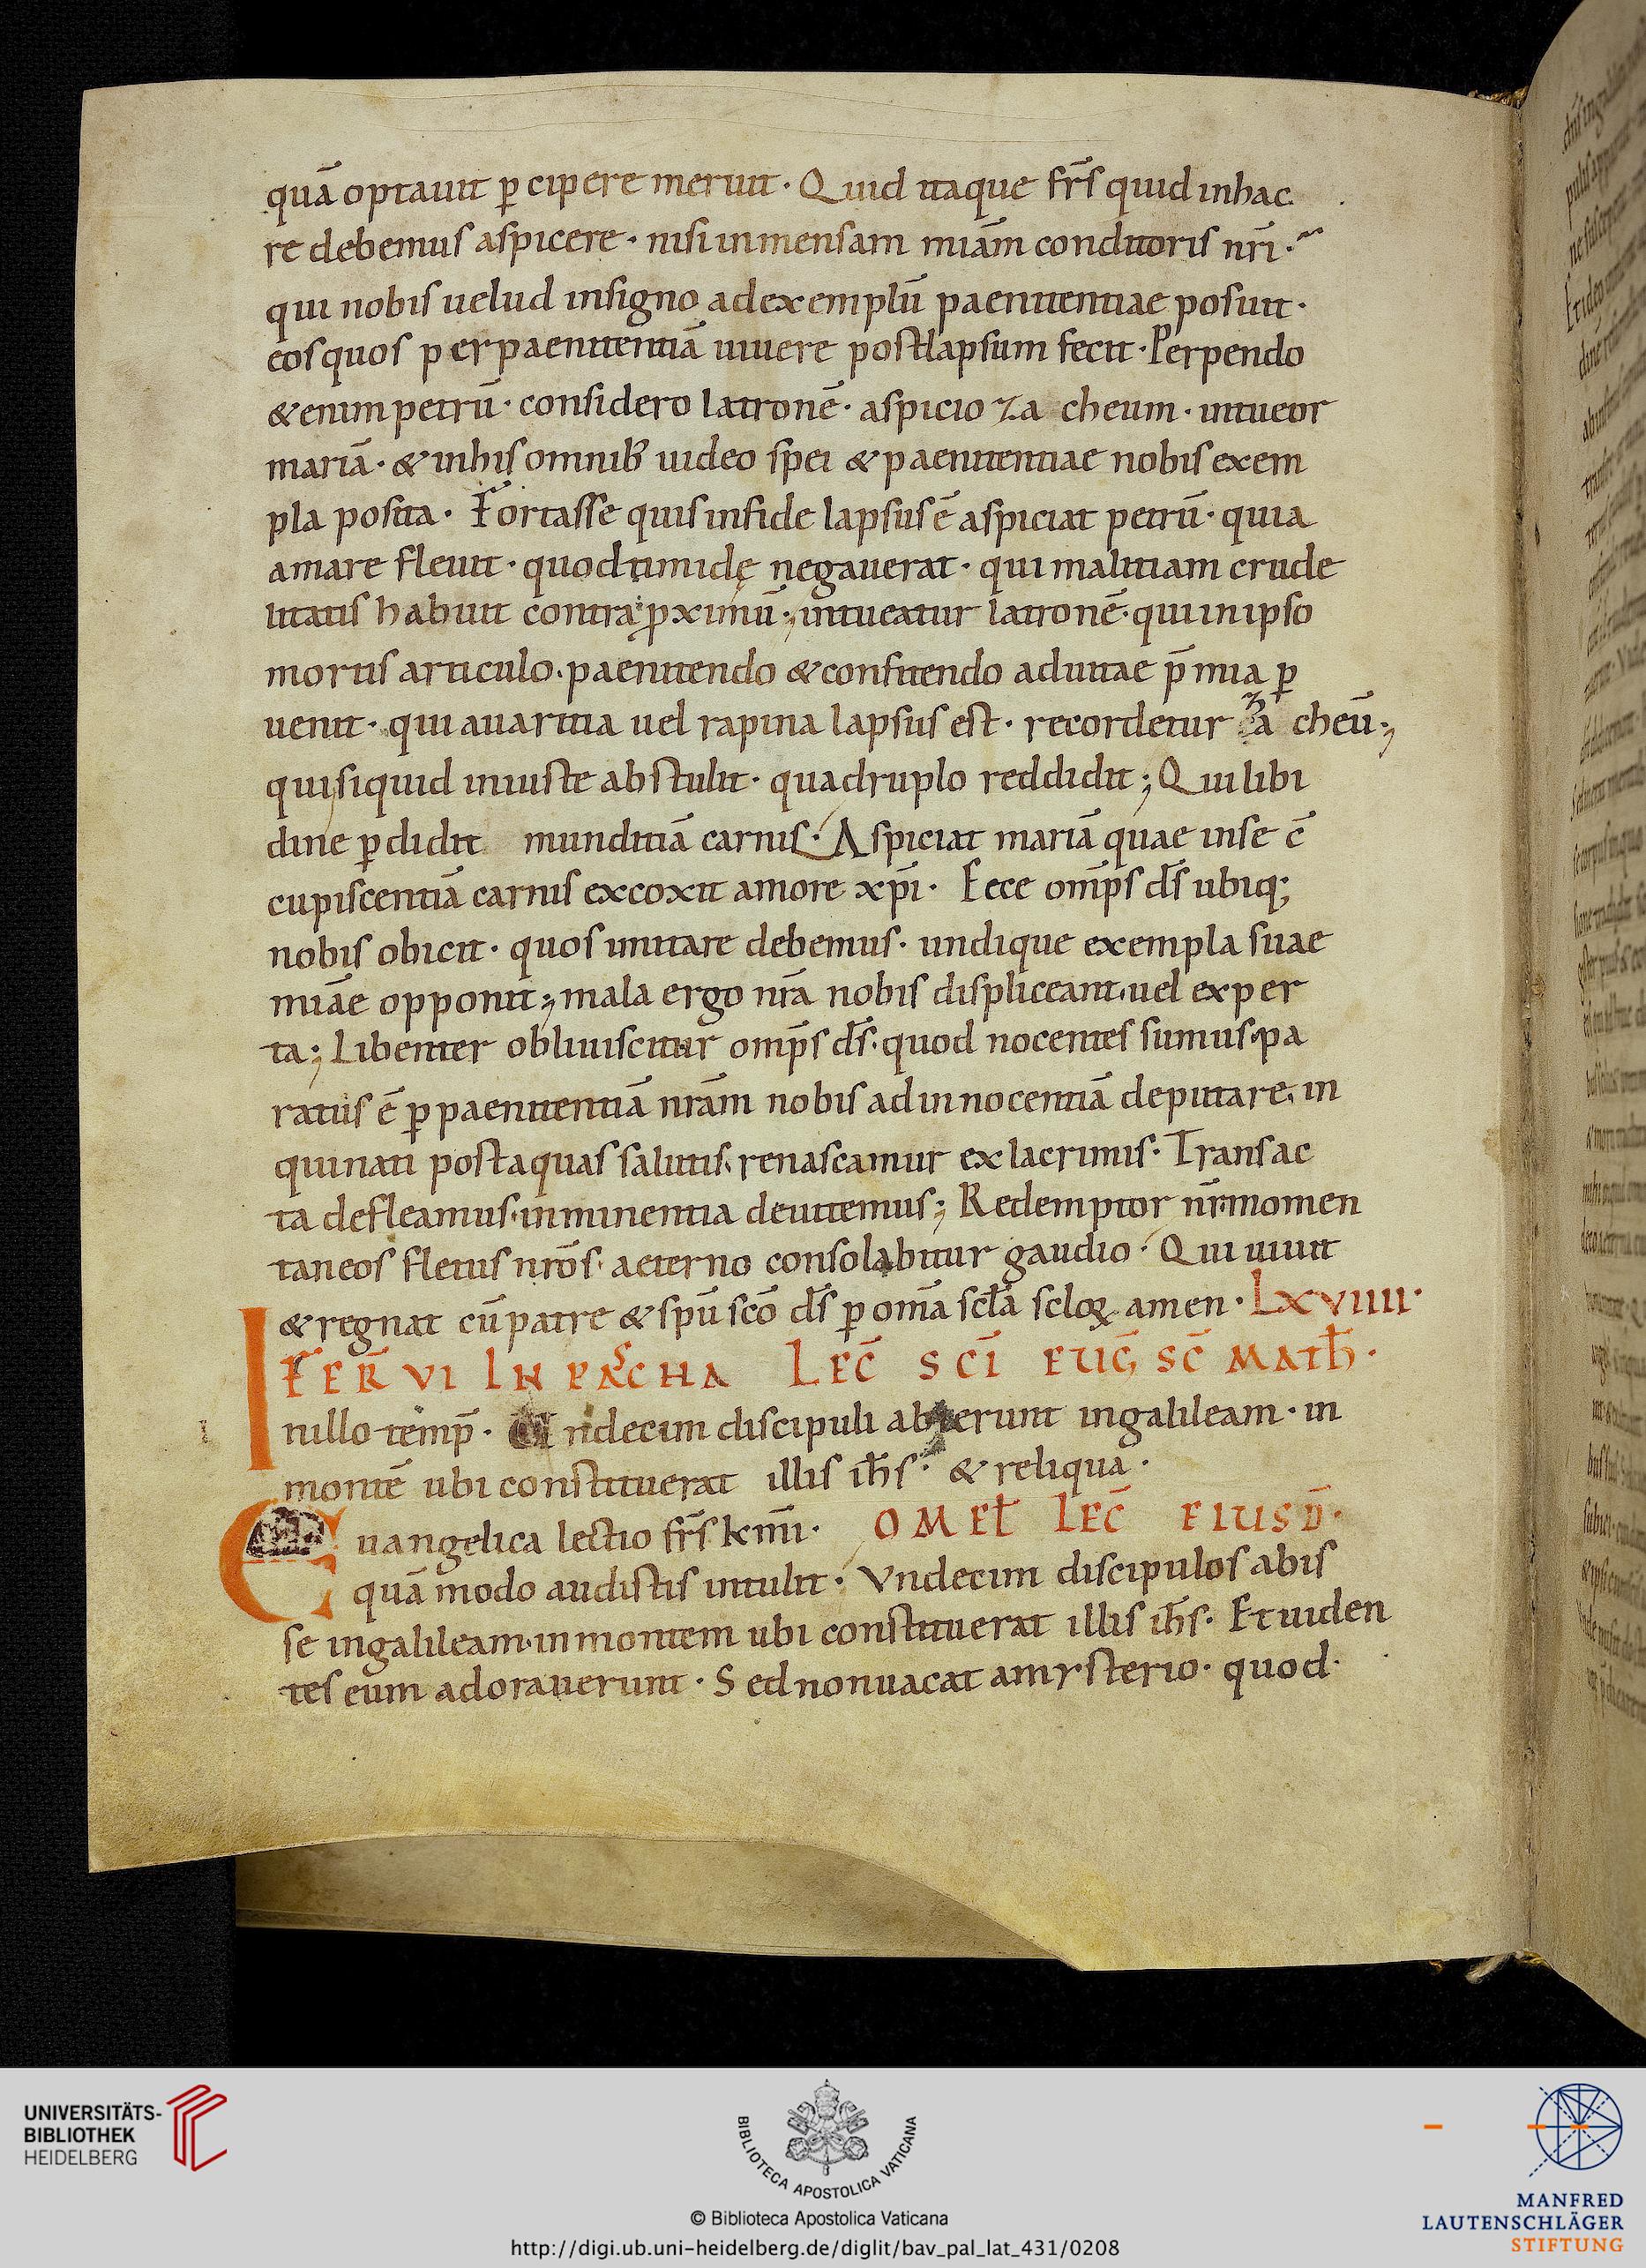 quā optauit ꝑcipere meruit · Quid itaque fr̄s quid inhac
re debemus aspicere · nisi inmensam miām conditoris nr̄i ·
qui nobis uelud insigno adexemplū paenitentiae posuit ·
eos quos per paenitentiā uiuere post lapsum fecit · Perpendo
& enim petrū · considero latronē · aspicio za cheum · intueor
mariā · & inhis omnib; uideo spei & paenitentiae nobis exem
pla posita · Fortasse quis infide lapsus ē aspiciat petrū · quia
amare fleuit · quod timide negauerat · qui malitiam crude
litatis habuit contra ꝓximū ; intueatur latronē · qui inipso
mortis articulo · paenitendo & confitendo aduitae p̄mia ꝑ
uenit · qui auaritia uel rapina lapsus est · recordetur za cheū ;
qui siquid iniuste abstulit · quadruplo reddidit ; Qui libi
dine ꝑdidit munditiā carnis · Aspiciat mariā quae inse c̄
cupiscentiā carnis excoxit amore xp̄i · Ecce omp̄s d̄s ubiq;
nobis obicit · quos imitare debemus · undique exempla suae
miāe opponit ; mala ergo nr̄a nobis displiceant · uel exper
ta ; Libenter obliuiscitur omp̄s d̄s · quod nocentes sumus · pa
ratus ē ꝑ paenitentiā nr̄am nobis adinnocentiā deputare · in
quinati post aquas salutis · renascamur ex lacrimis · Transac
ta defleamus · inminentia deuitemus ; Redemptor nr̄ momen
taneos fletus nr̄os · aeterno consolabitur gaudio · Qui uiuit
& regnat cū patre & sp̄u sc̄o d̄s ꝑ om̄a sc̄la scloꝝ amen · LXVIIII ·
FER̄ VI IN PASCHA LEC̄ SC̄I EUG̅ SC̄ MATH̄ ·
Inillo temp̄ · Undecim discipuli abierunt ingalileam · in
montē ubi constituerat illis ih̄s · & reliqua ·
Euangelica lectio fr̄s km̄i · OMEL̄ LEC̄ EIUSD̄ ·
quā modo audistis intulit · Vndecim discipulos abis
se ingalileam · inmontem ubi constituerat illis ih̄s · Et uiden
tes eum adorauerunt · Sed non uacat amysterio · quod ·
UNIVERSITÄTS-
BIBLIOTHEK
HEIDELBERG
BIBLIOTECA APOSTOLICA VATICANA
© Biblioteca Apostolica Vaticana
http://digi.ub.uni-heidelberg.de/diglit/bav_pal_lat_431/0208
MANFRED
LAUTENSCHLÄGER
STIFTUNG